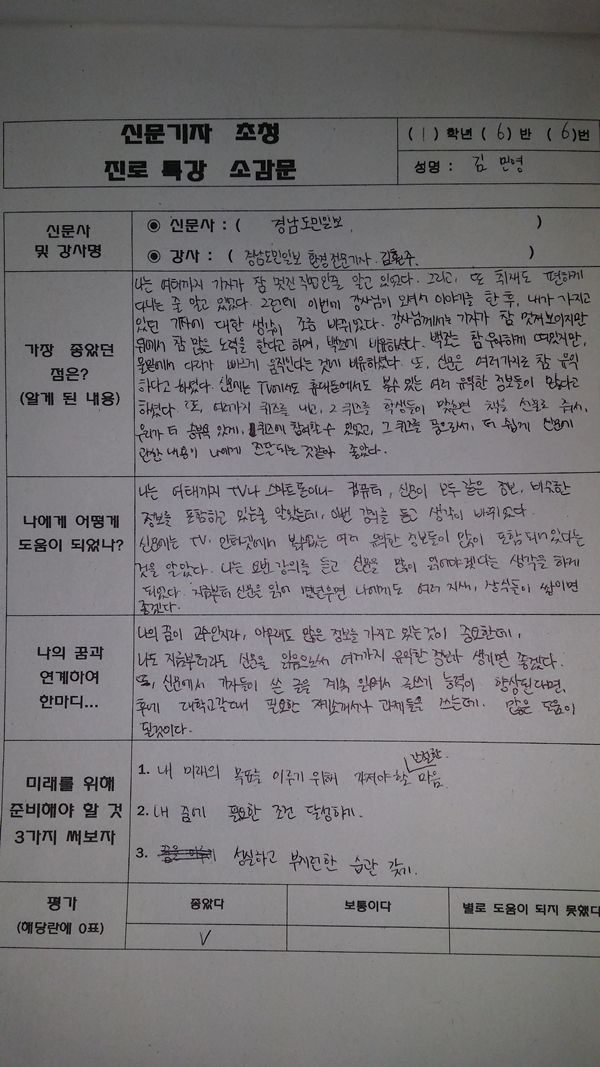 신문기자 초청
진로 특강 소감문
( 1 ) 학년 ( 6 ) 반 ( 6 )번
성명 : 김 민영
신문사
및 강사명
◉ 신문사 : ( 경남도민일보 )
◉ 강사 : ( 경남도민일보 환경전문기자. 김훤주. )
가장 좋았던
점은?
(알게 된 내용)
나는 여태까지 기자가 참 멋진 직업인줄 알고 있었다. 그리고, 또 취재도 편하게
다니는 줄 알고 있었다. 그런데 이번에 강사님이 오셔서 이야기를 한 후, 내가 가지고
있던 기자에 대한 생각이 조금 바뀌었다. 강사님께서는 기자가 참 멋져보이지만
뒤에서 참 많은 노력을 한다고 하며, 백조에 비유하셨다. 백조는 참 우아하게 떠있지만,
물밑에서 다리가 빠르게 움직인다는 것에 비유하셨다. 또, 신문은 여러가지로 참 유익
하다고 하셨다. 신문에는 TV에서도 휴대폰에서도 볼수 없는 여러 유익한 정보들이 많다고
하셨다. 또, 여러가지 퀴즈를 내고, 그 퀴즈를 학생들이 맞추면 책을 선물로 주셔서,
우리가 더 승부욕 있게, 퀴즈에 참여할 수 있었고, 그 퀴즈를 풂으로써, 더 쉽게 신문에
관한 내용이 나에게 전달되는 것같아 좋았다.
나에게 어떻게
도움이 되었나?
나는 여태까지 TV나 스마트폰이나 컴퓨터, 신문이 모두 같은 정보, 비슷한
정보를 포함하고 있는줄 알았는데, 이번 강의를 듣고 생각이 바뀌었다.
신문에는 TV, 인터넷에서 볼수없는 여러 유익한 정보들이 많이 포함 되어있다는
것을 알았다. 나는 이번 강의를 듣고 신문을 많이 읽어야겠다는 생각을 하게
되었다. 지금부터 신문을 읽어 버릇하면 나에게도 여러 지식, 상식들이 쌓이면
좋겠다.
나의 꿈과
연계하여
한마디...
나의 꿈이 교수인지라, 아무래도 많은 정보를 가지고 있는것이 중요한데,
나도 지금부터라도 신문을 읽음으로써 여러가지 유익한 정보가 생기면 좋겠다.
또, 신문에서 기자들이 쓴 글을 계속 읽어서 글쓰기 능력이 향상된다면,
후에 대학교갈때 필요한 자기소개서나 과제들을 쓰는데 많은 도움이
될것이다.
미래를 위해
준비해야 할 것
3가지 써보자
1. 내 미래의 목표를 이루기 위해 가져야할 간절한 마음.
2. 내 꿈에 필요한 조건 달성하기.
3. 성실하고 부지런한 습관 갖기.
평가
(해당란에 0표)
좋았다
보통이다
별로 도움이 되지 못했다
V